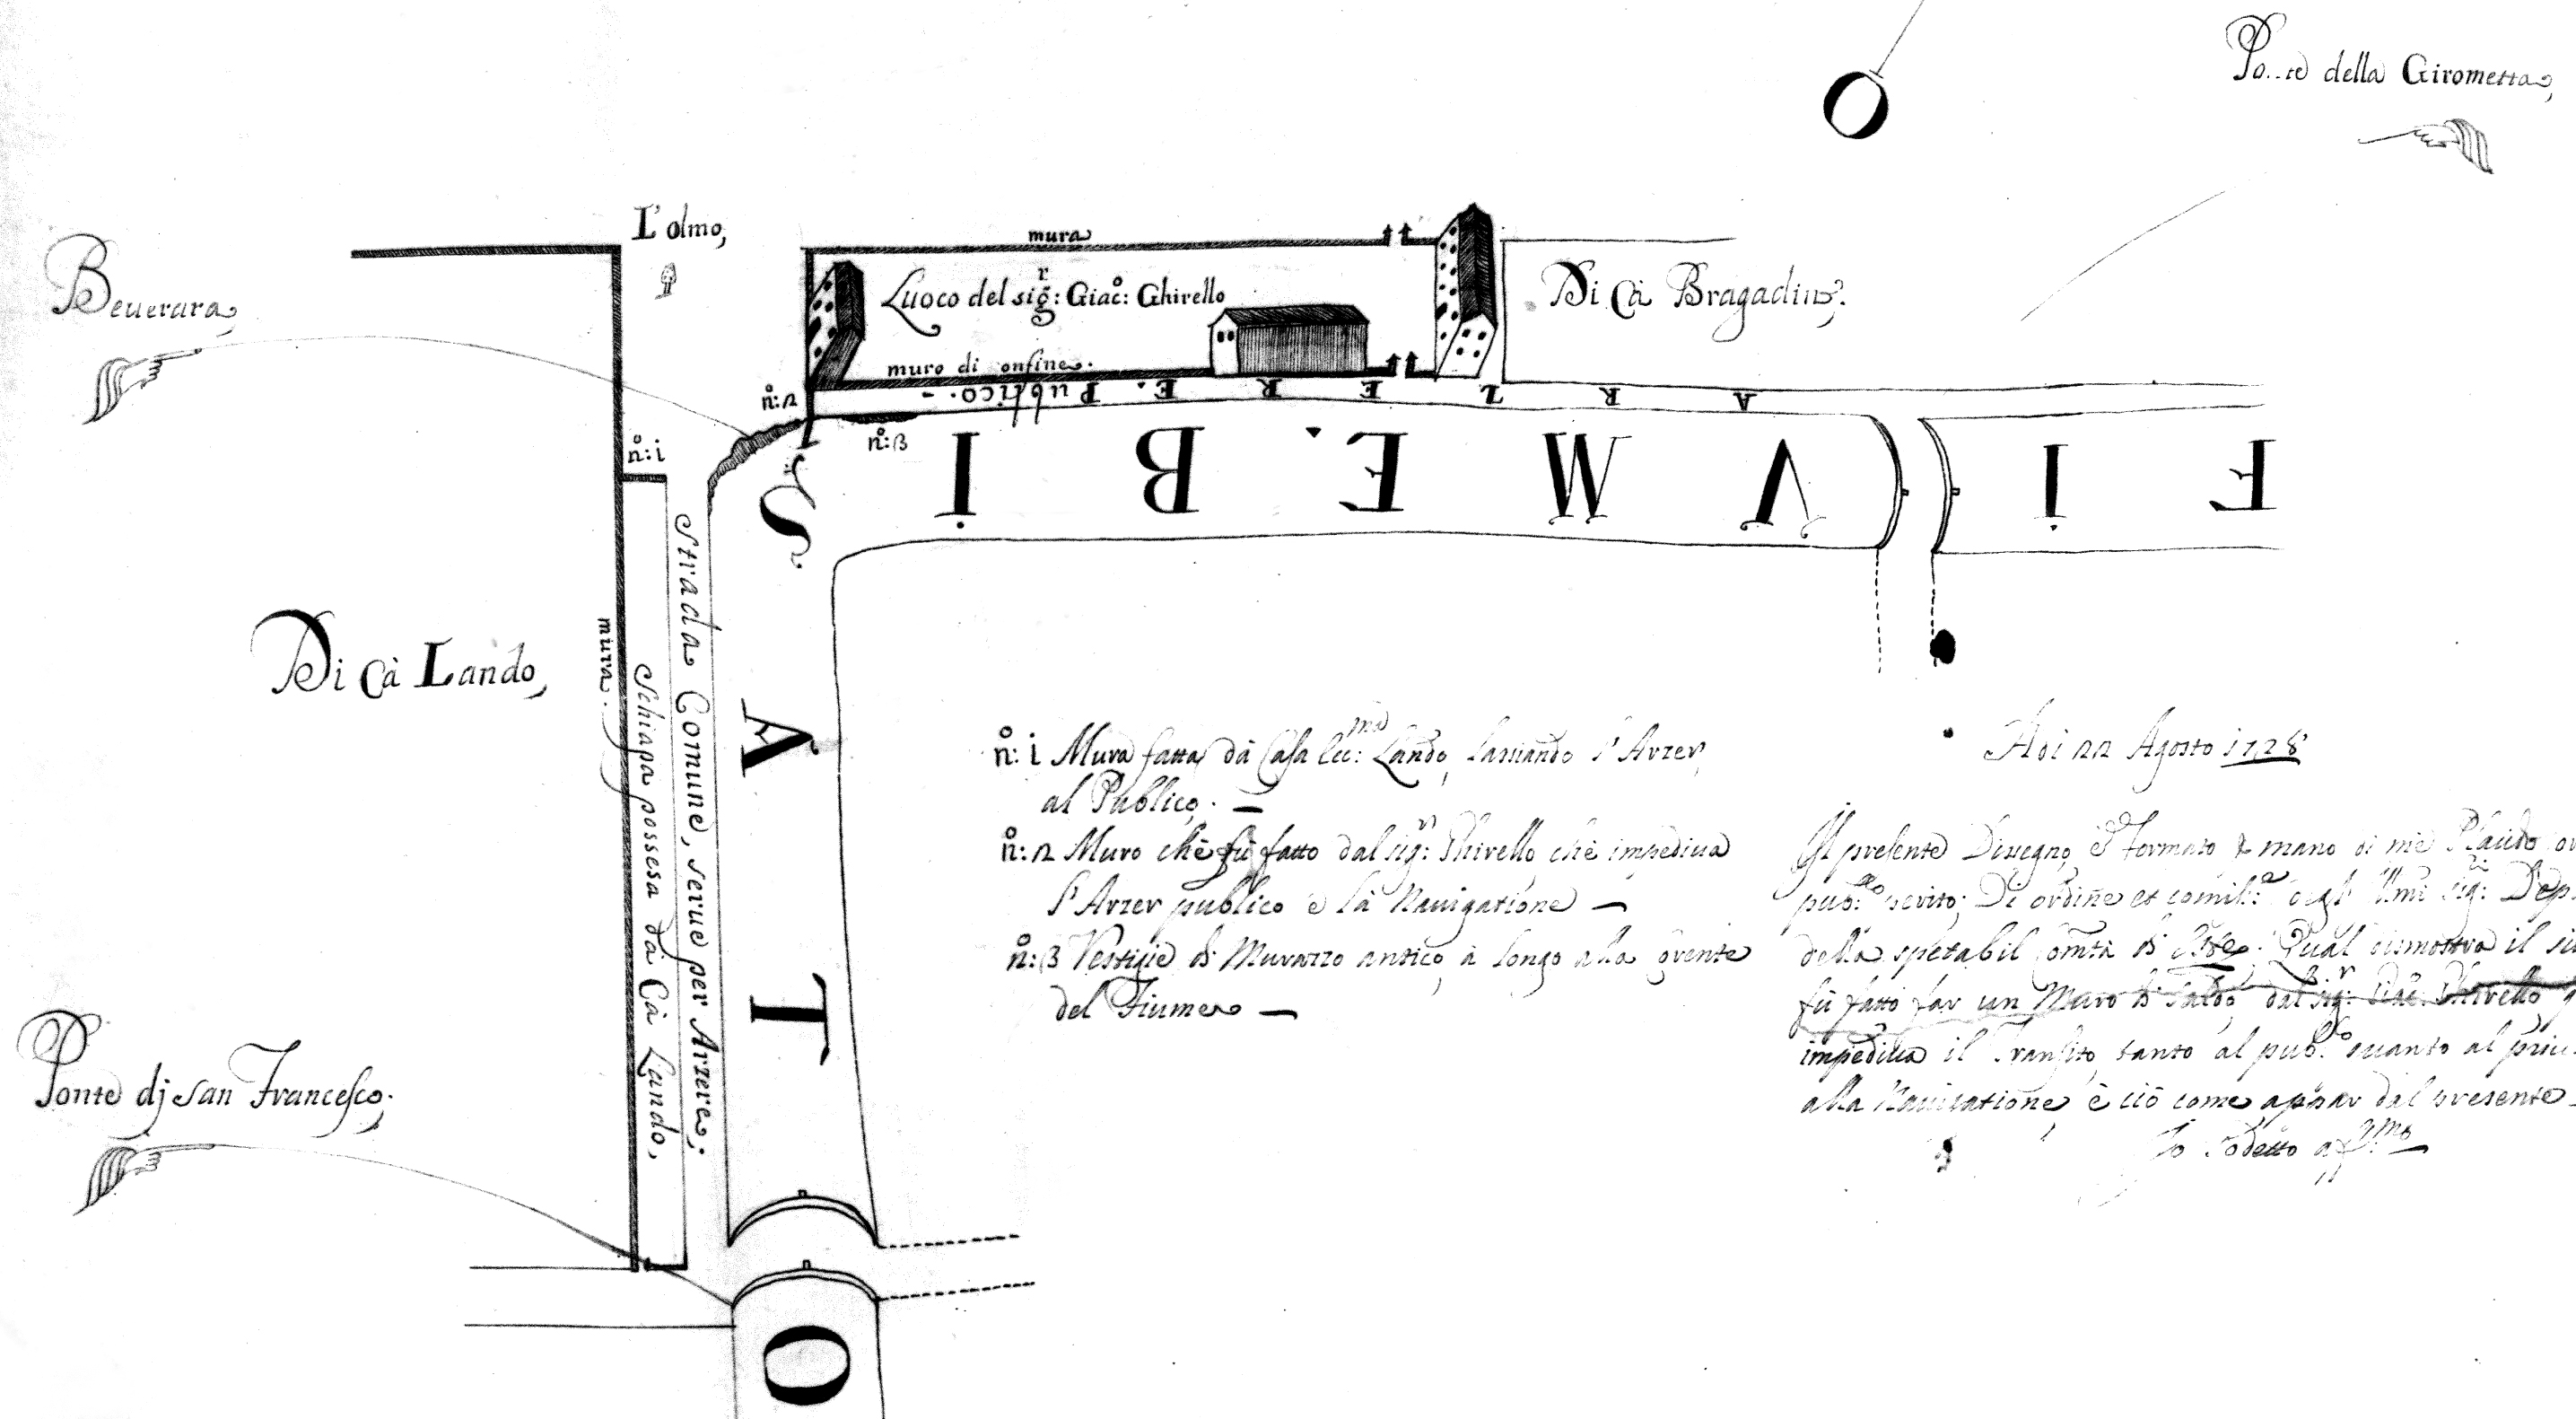 O
Po..te della Girometta,
L'olmo,
Beuerara,
mura
Luoco del sig.r: Giac.o: Ghirello
Di Cà Bragadin.
muro di onfine.
n.o: 2
ARZERE. Publico. -
n.o: 3
n.o: i
FIVME. BISATO
Strada Comune, serue per Arzere;
mura.
Schiapa possesa da Cà Lando,
Di Cà Lando,
Ponte dj san Francesco.
n.o: i Mura fatta dà Casa Ecc.ma: Lando, lassando l'Arzer
al Publico. —
n.o: 2 Muro chè fù fatto dal sig.r: Ghirello chè impediua
l'Arzer publico è la Nauigatione —
n.o: 3 Vestigie di Murazzo antico à longo alla
del Fiume —
Adi 22 Agosto 1728
Il presente Dissegno è formato mano di me Placido
pub.co perito; Di ordine et Ill.mi sig.ri: Dep
della spetabil Com.tà di Este. Qual dimostra il
fù fatto far un Muro di saldo dal sig.r: Giac. Ghirello
impediua il Transito tanto al pub.co quanto al priu
alla Nauigatione, è ciò come appar dal presente
Io sodetto